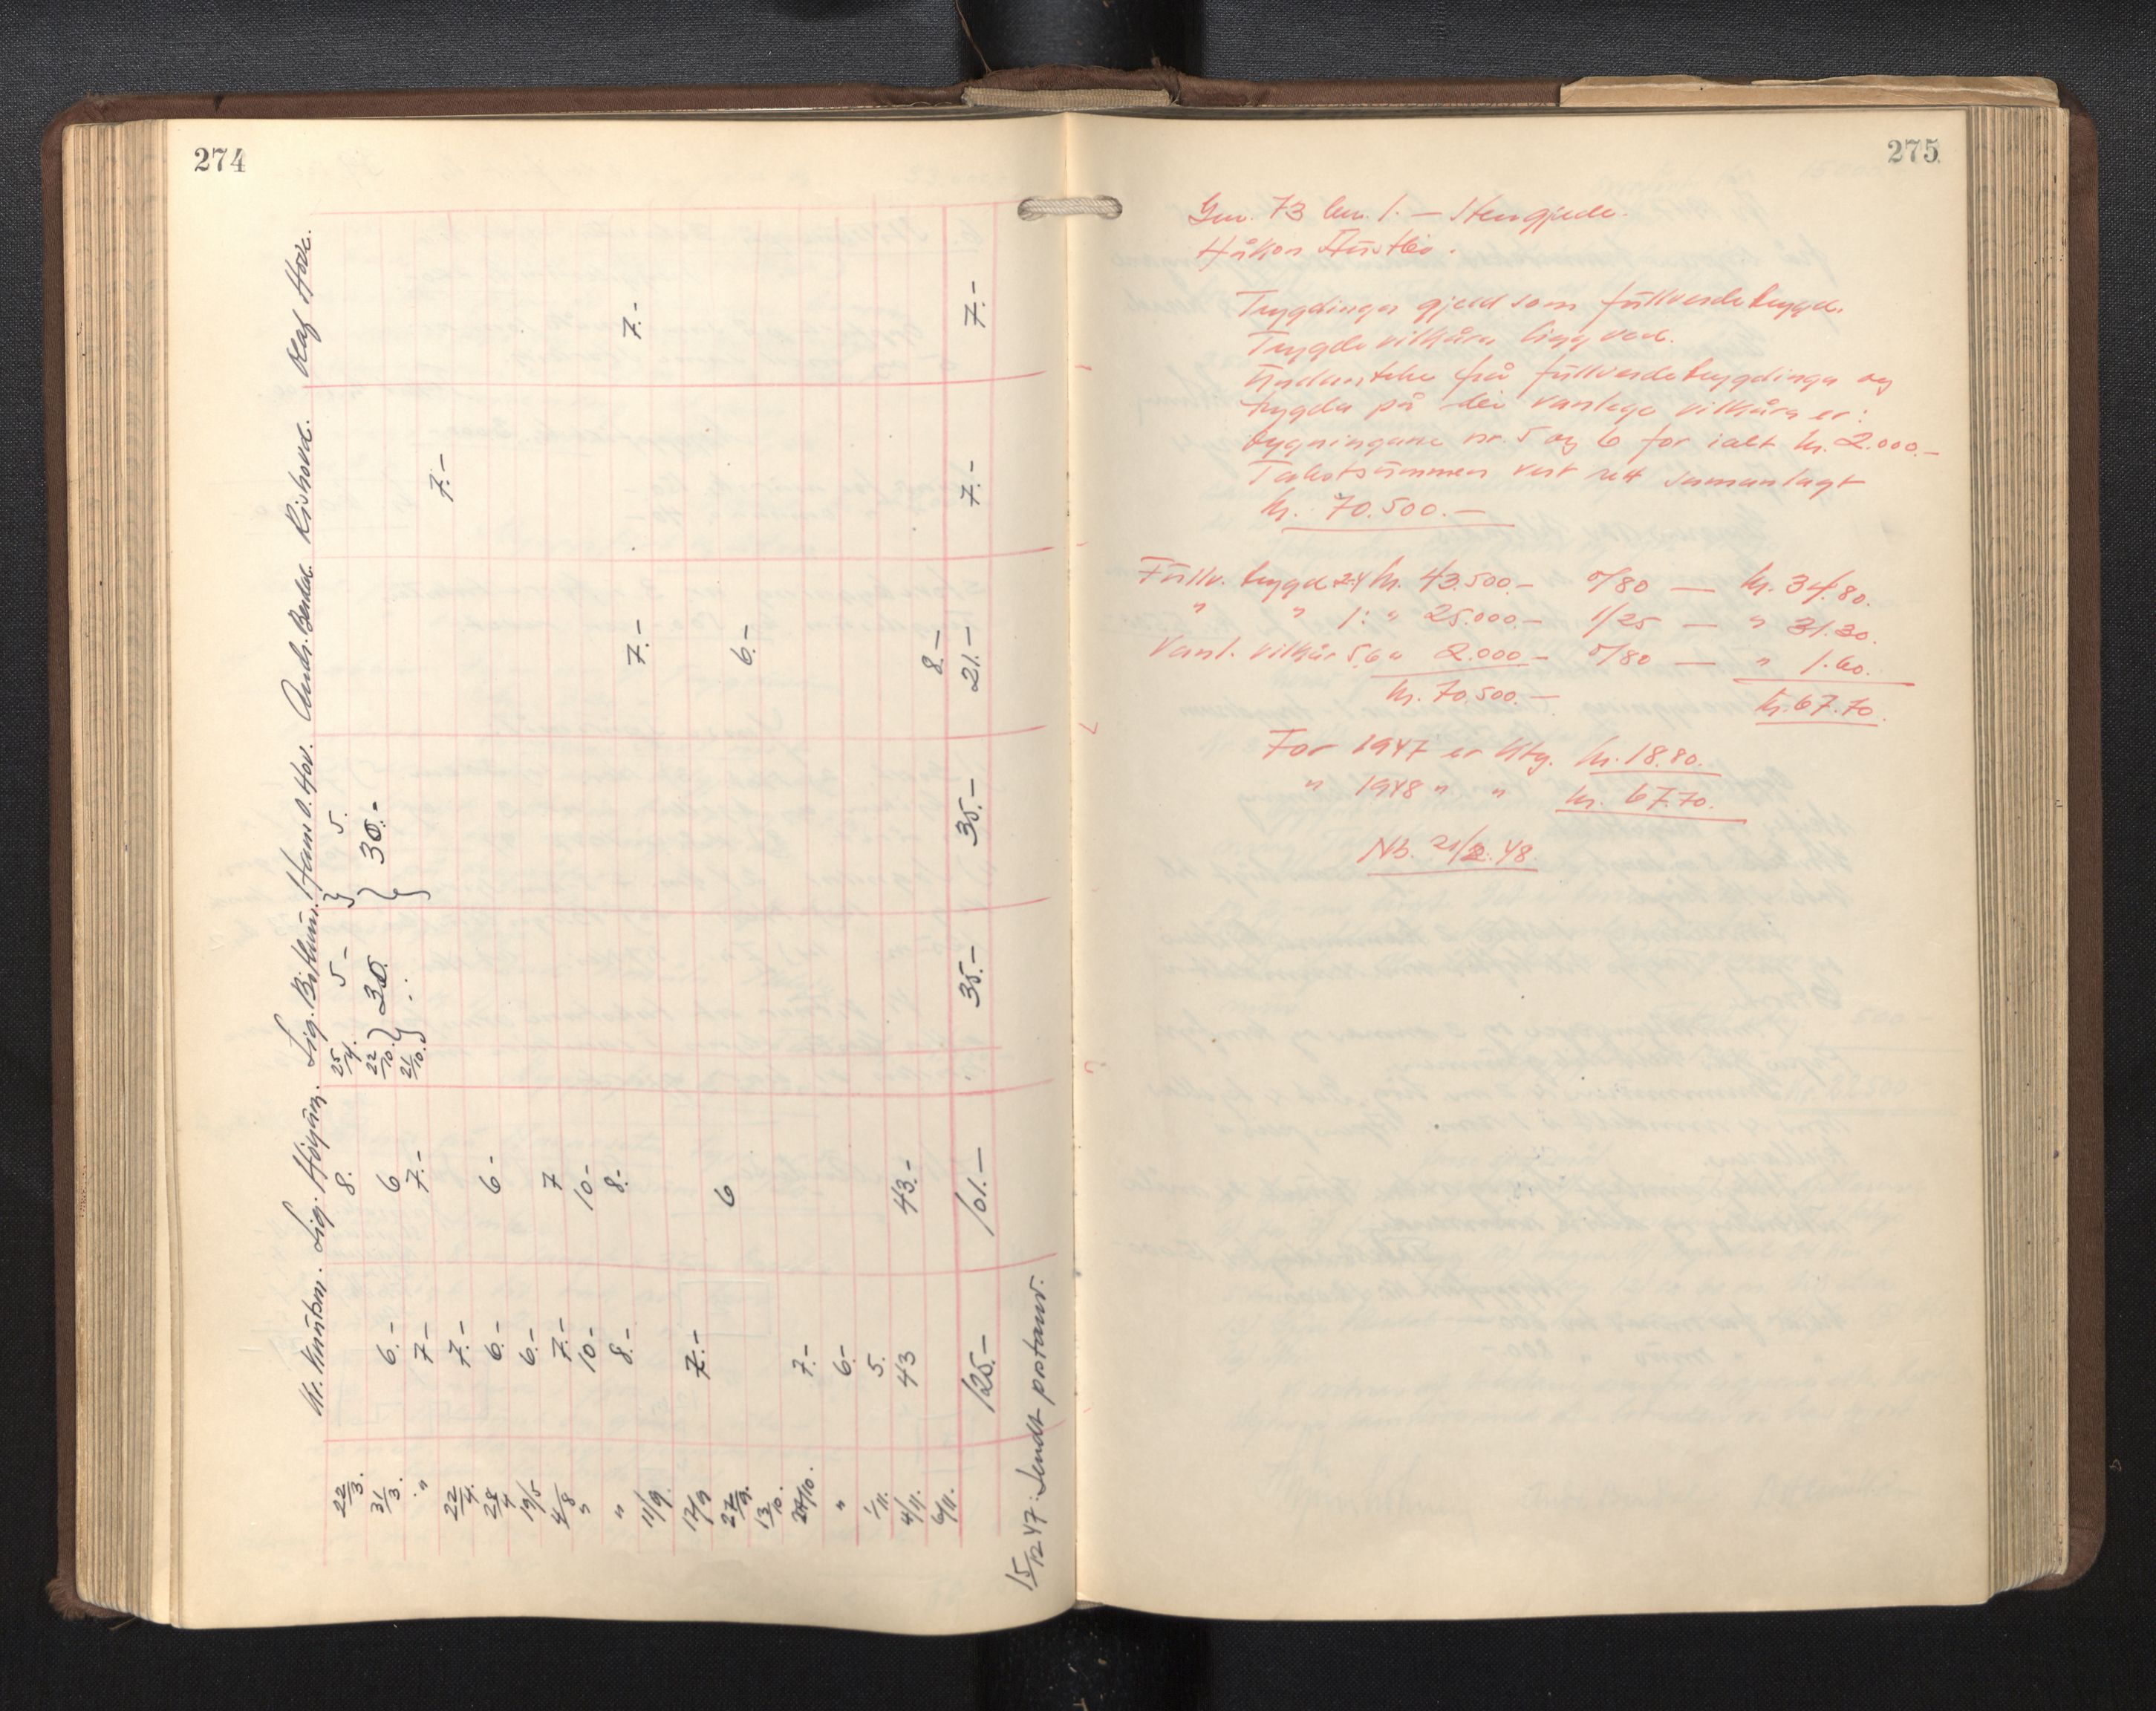 274
Kr. Knutsen. Sig. Höyum. Sig. Böthun. Hans O. Hov. Anders Berdal. Rishovd. Olaf Hove.
22/3. 8. 25/4. 5- } 5.
31/3. 6.- 6 22/10. } 30. } 30.-
" 7.- 7.- 21/10. } } 7.-
22/4. 7.-
28/4 6.- 6.-
19/5 6.-
4/8 7.- 7
" 10.- 10.-
" 8.- 8.-
11/9. 7.- 7.-
12/9 7.-
27/9. 6
13/10. 6.-
24/10. 7.-
" 6.-
1/11. 5.
4/11. 43 43.-
6/11. 8.-
125.- 101.- 35.- 35.- 21.- 7.- 7.-
15/12 47: Sendt postanv.
275
Gnr. 73 bnr. 1. — Stengjede.
Håkon Austbö.
Trygdinga gjeld som fullverdetrygd.
Trygdevilkåra ligg ved.
Undanteke frå fullverdetrygdinga og
trygda på dei vanlege vilkåra er:
bygningane nr. 5 og 6 for ialt kr. 2.000.-
Takstsummen vert sett samanlagt
kr. 70.500.-
Fullv. trygd 2-4 kr. 43.500.- 0/80 — kr. 34.80.
" " 1: " 25.000.- 1/25 — " 31.30.
Vanl. vilkår 5,6 " 2.000 - 0/80 — " 1.60.
kr. 70.500.- kr. 67.70.
For 1947 er btg. kr. 18.80.
" 1948 " " kr. 67.70.
Nb. 21/2. 48.